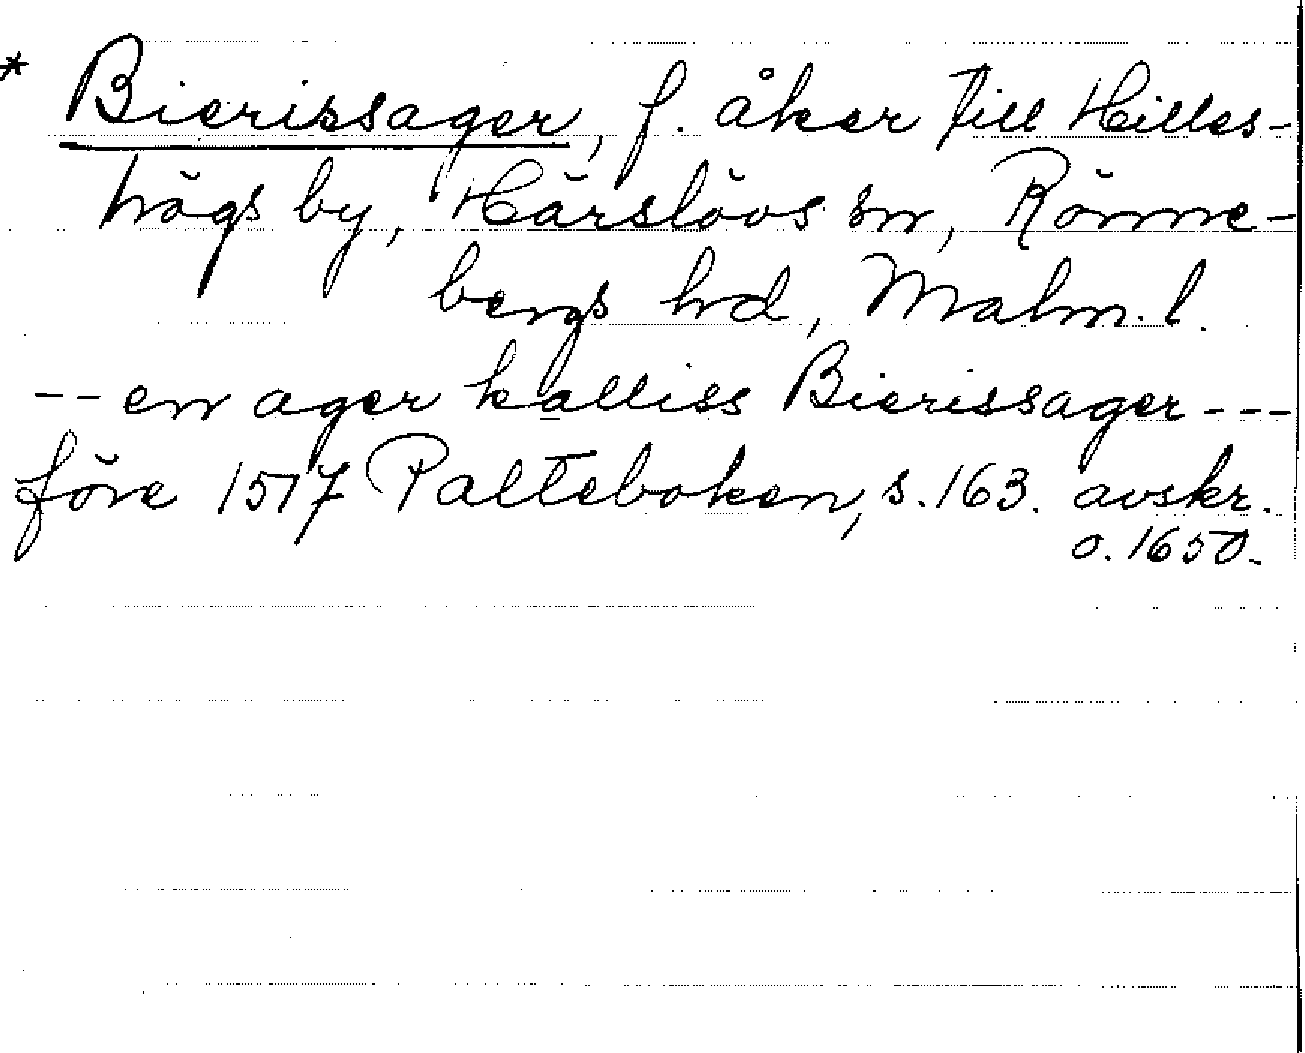 * Bierissager, f. åker till Hilles-
högs by, Härslövs sn, Rönne-
bergs hd, Malm. l.
-- en ager kalliss Bierissager ---
före 1517 Palteboken, s. 163. avskr.
o. 1650.